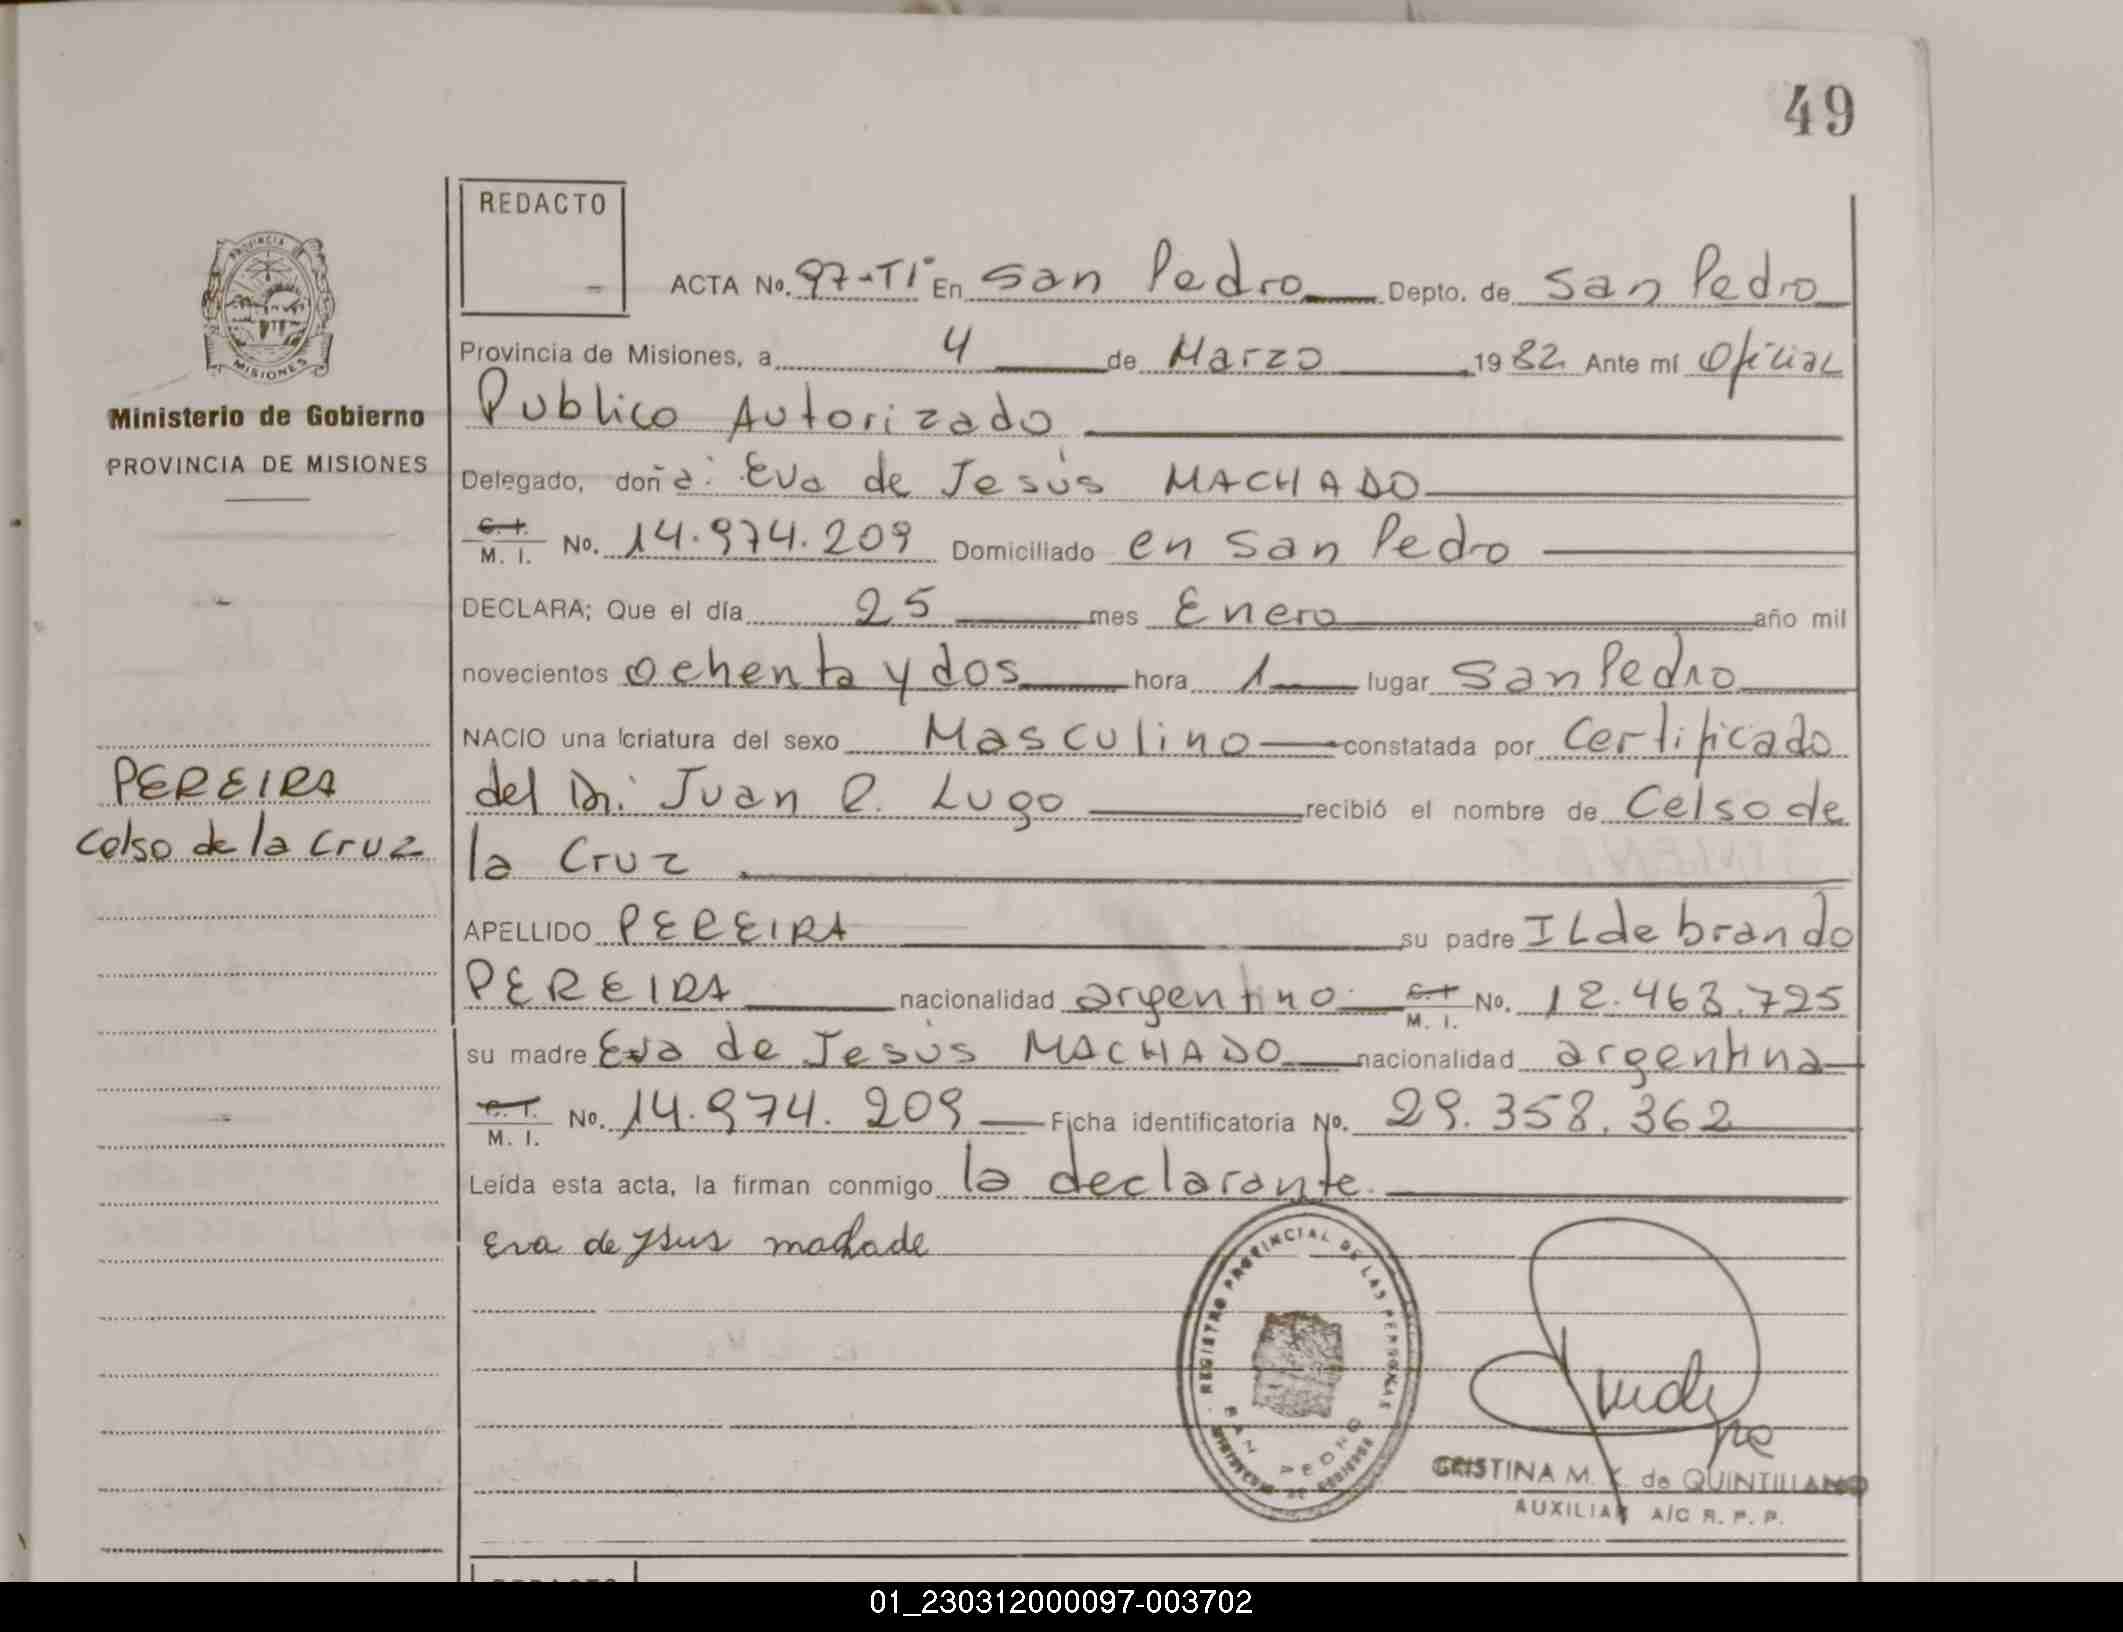 49
REDACTO
ACTA No. 97-TI° En San Pedro Depto. de San Pedro
Provincia de Misiones, a 4 de Marzo 1982 Ante mí Oficial
Publico Autorizado
Ministerio de Gobierno
PROVINCIA DE MISIONES
Delegado, doña: Eva de Jesús MACHADO
C. I.
M. I. No. 14.974.209 Domiciliado en San Pedro
DECLARA; Que el día 25 mes Enero año mil
novecientos ochenta y dos hora 1 lugar San Pedro
NACIO una criatura del sexo Masculino constatada por Certificado
PEREIRA
del Dr. Juan R. Lugo recibió el nombre de Celso de
Celso de la Cruz
la Cruz
APELLIDO PEREIRA su padre ILdebrando
PEREIRA nacionalidad argentino C. I.
M. I. No. 12.463.725
su madre Eva de Jesús MACHADO nacionalidad argentina
C. I.
M. I. No. 14.974.209 Ficha identificatoria No. 29.358.362
Leída esta acta, la firman conmigo la declarante.
Eva de Jsus machade
REGISTRO PROVINCIAL DE LAS PERSONAS
SAN PEDRO
MINISTERIO DE GOBIERNO
CRISTINA M. K. de QUINTILLANO
AUXILIAR A/C R. P. P.
REDACTO
PROVINCIA DE
MISIONES
01_230312000097-003702